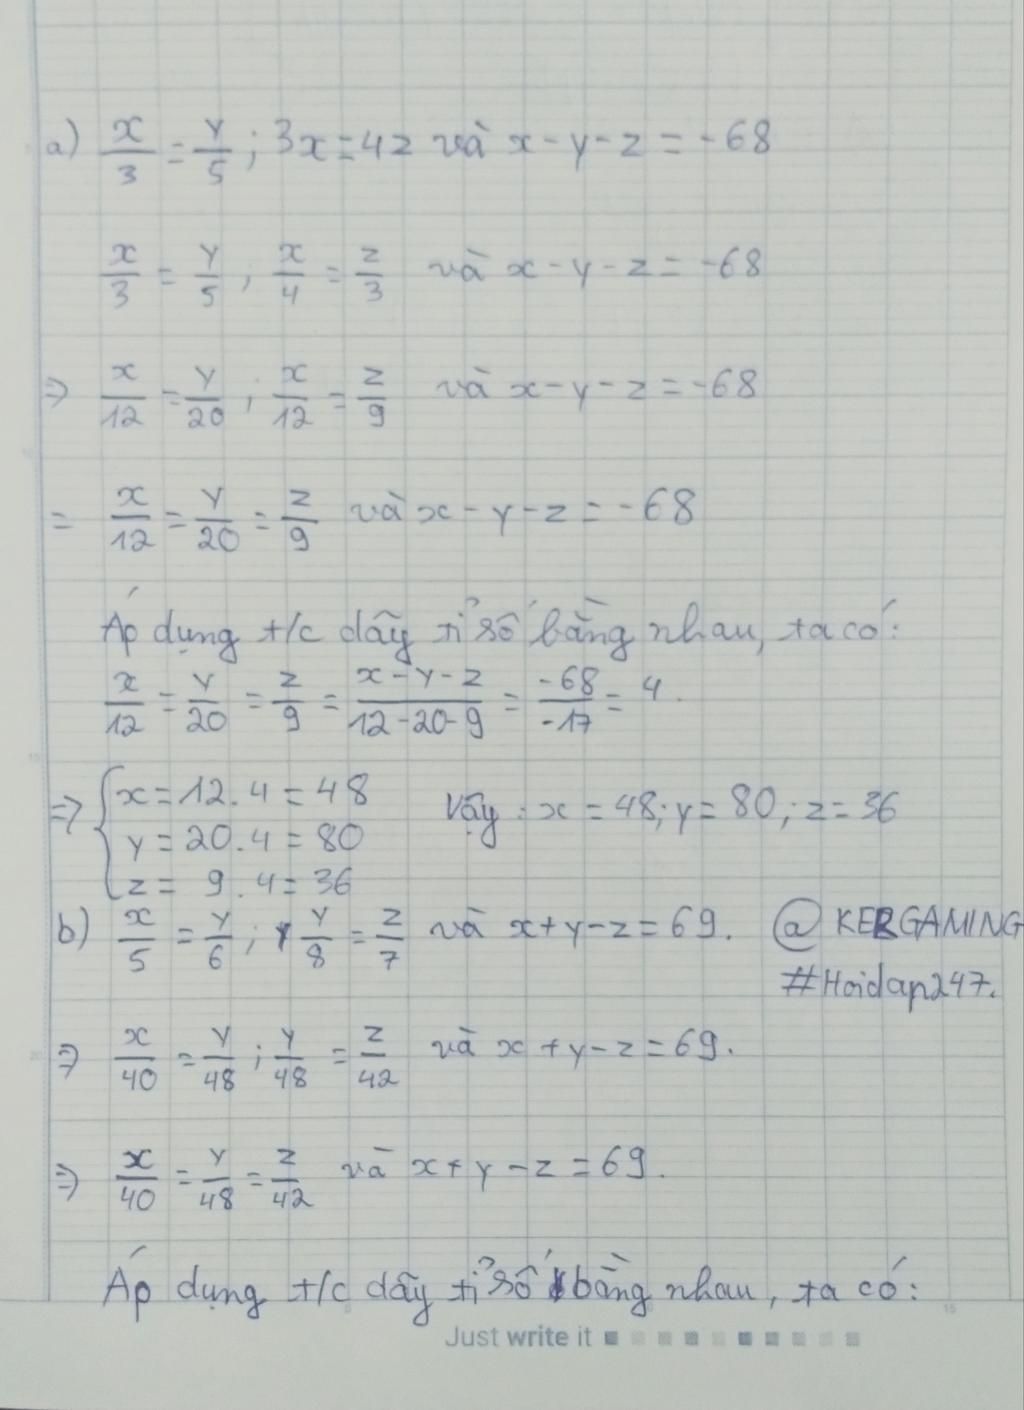 a) x/3 = y/5 ; 3x = 4z và x - y - z = -68
x/3 = y/5 ; x/4 = z/3 và x - y - z = -68
=> x/12 = y/20 ; x/12 = z/9 và x - y - z = -68
= x/12 = y/20 = z/9 và x - y - z = -68
Áp dụng t/c dãy tỉ số bằng nhau, ta có:
x/12 = y/20 = z/9 = (x - y - z)/(12 - 20 - 9) = -68/-17 = 4.
=> { x = 12 . 4 = 48
y = 20 . 4 = 80
z = 9 . 4 = 36
Vậy : x = 48; y = 80 ; z = 36
b) x/5 = y/6 ; y/8 = z/7 và x + y - z = 69.
@KERGAMING
#Hoidap247.
=> x/40 = y/48 ; y/48 = z/42 và x + y - z = 69.
=> x/40 = y/48 = z/42 và x + y - z = 69.
Áp dụng t/c dãy tỉ số bằng nhau, ta có:
Just write it